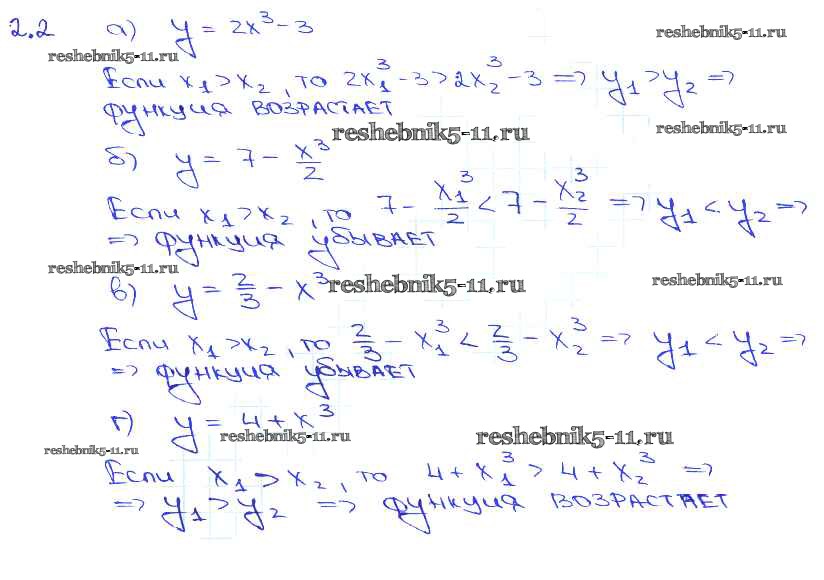 2.2 а) y = 2x³ - 3 reshebnik5-11.ru
reshebnik5-11.ru
Если x₁ > x₂, то 2x₁³ - 3 > 2x₂³ - 3 => y₁ > y₂ =>
функция ВОЗРАСТАЕТ
reshebnik5-11.ru reshebnik5-11.ru
б) y = 7 - x³/2
Если x₁ > x₂, то 7 - x₁³/2 < 7 - x₂³/2 => y₁ < y₂ =>
=> функция убывАЕТ
reshebnik5-11.ru reshebnik5-11.ru
в) y = 2/3 - x³ reshebnik5-11.ru
Если x₁ > x₂, то 2/3 - x₁³ < 2/3 - x₂³ => y₁ < y₂ =>
=> функция убывАЕТ
г) y = 4 + x³
reshebnik5-11.ru reshebnik5-11.ru
reshebnik5-11.ru
Если x₁ > x₂, то 4 + x₁³ > 4 + x₂³ =>
=> y₁ > y₂ => функция ВОЗРАСТАЕТ